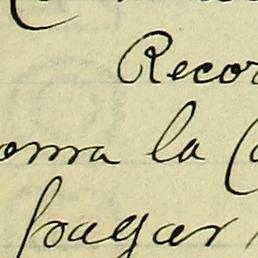 Recor
oma la C
pagar